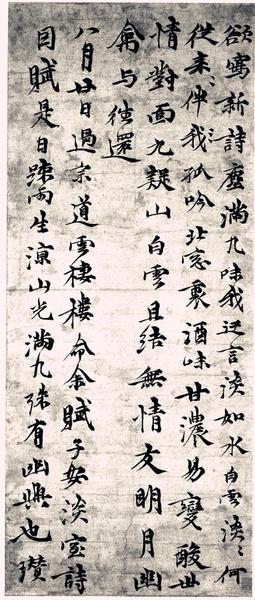 欲寫新詩塵滿九味我迂言淡如水白雲淡〻何
從來〻伴我孤吟北窓裏酒味甘濃易變酸世
情對面九疑山白雲且結無情友明月幽
禽与往還
八月廿日過宗道雲棲樓命余賦子安淡室詩
因賦是日疎雨生涼山光滿九殊有幽興也瓚